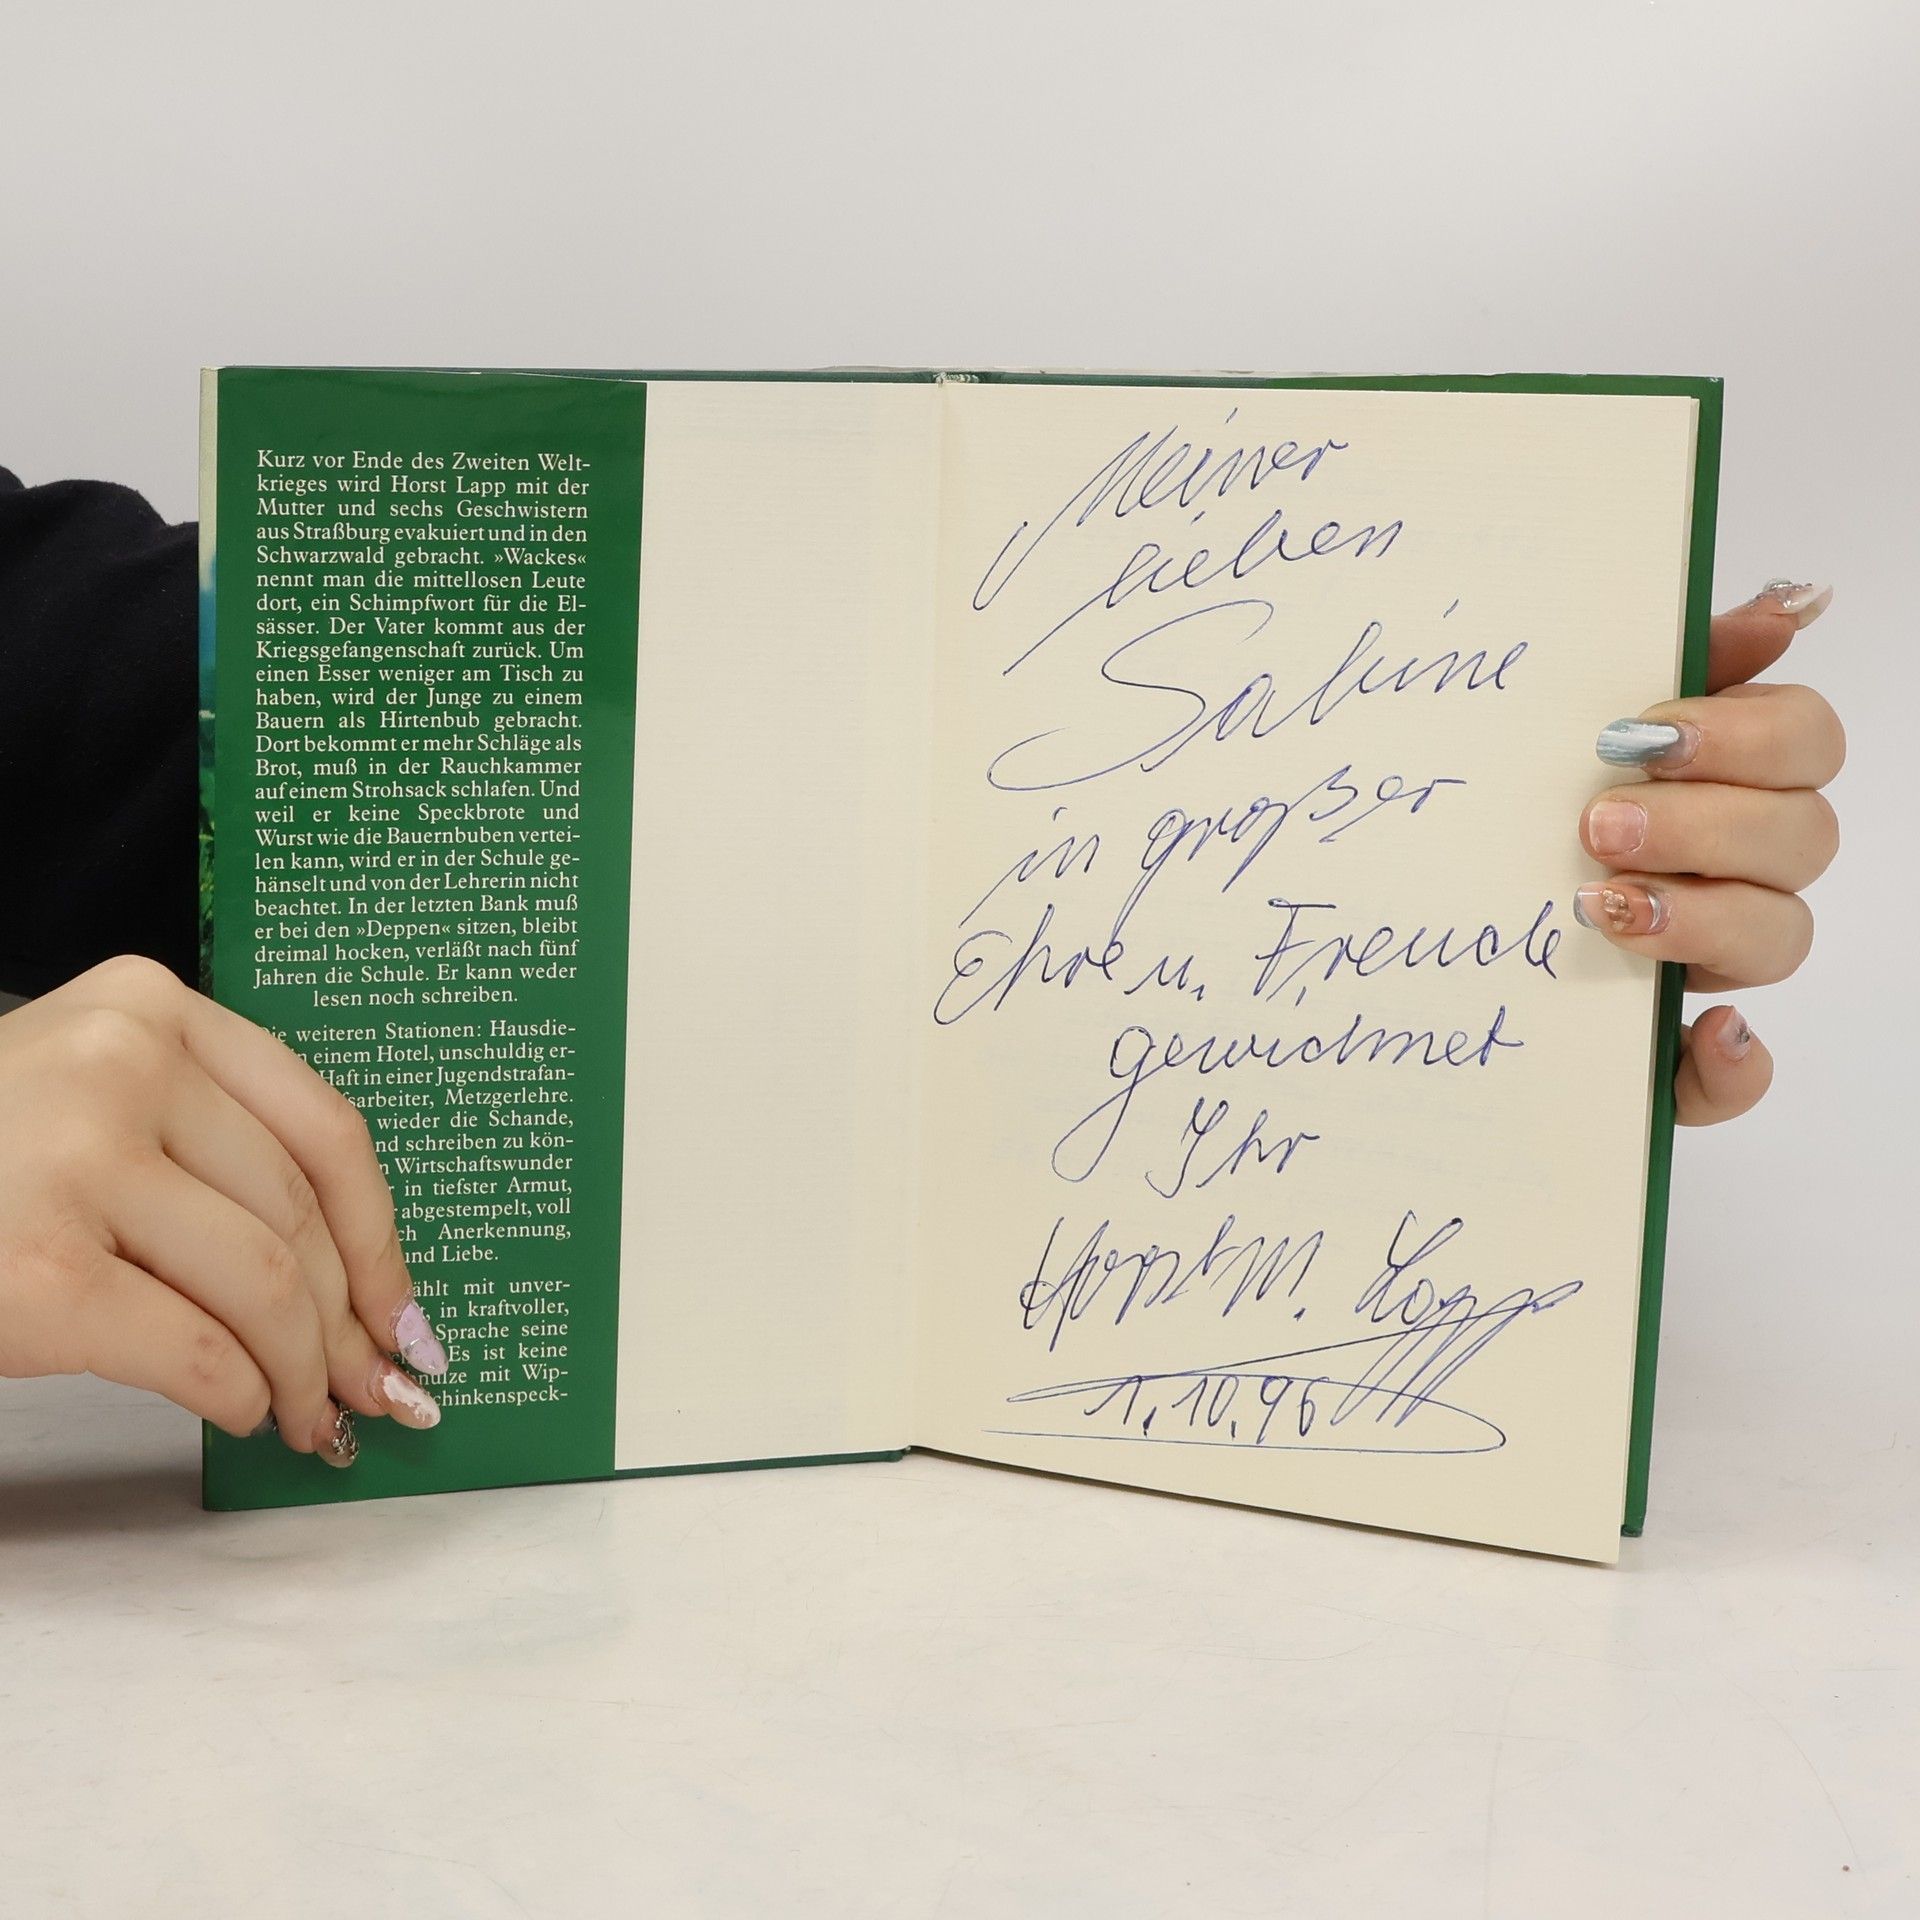 Kurz vor Ende des Zweiten Welt-
krieges wird Horst Lapp mit der
Mutter und sechs Geschwistern
aus Straßburg evakuiert und in den
Schwarzwald gebracht. »Wackes«
nennt man die mittellosen Leute
dort, ein Schimpfwort für die El-
sässer. Der Vater kommt aus der
Kriegsgefangenschaft zurück. Um
einen Esser weniger am Tisch zu
haben, wird der Junge zu einem
Bauern als Hirtenbub gebracht.
Dort bekommt er mehr Schläge als
Brot, muß in der Rauchkammer
auf einem Strohsack schlafen. Und
weil er keine Speckbrote und
Wurst wie die Bauernbuben vertei-
len kann, wird er in der Schule ge-
hänselt und von der Lehrerin nicht
beachtet. In der letzten Bank muß
er bei den »Deppen« sitzen, bleibt
dreimal hocken, verläßt nach fünf
Jahren die Schule. Er kann weder
lesen noch schreiben.
Die weiteren Stationen: Hausdie-
in einem Hotel, unschuldig er-
Haft in einer Jugendstrafan-
sarbeiter, Metzgerlehre.
wieder die Schande,
nd schreiben zu kön-
n Wirtschaftswunder
r in tiefster Armut,
r abgestempelt, voll
ch Anerkennung,
und Liebe.
ählt mit unver-
t, in kraftvoller,
Sprache seine
Es ist keine
hnulze mit Wip-
chinkenspeck-
Meiner
lieben
Sabine
in großer
Ehre u. Freude
gewidmet
Ihr
Horst M. Lapp
1.10.96